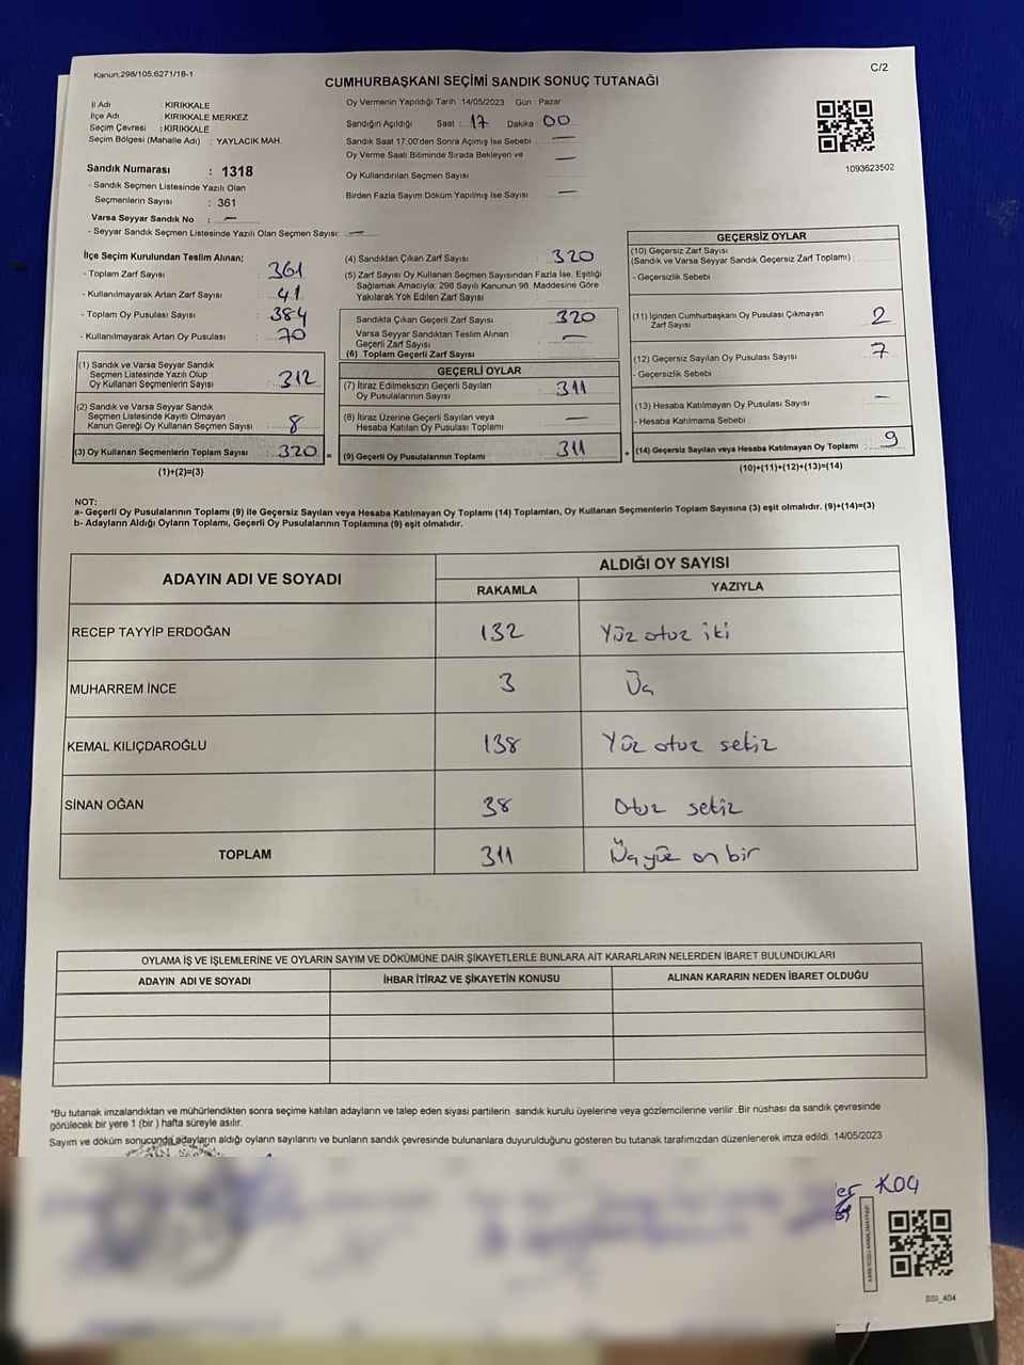 Kanun:298/105.6271/18-1
C/2
CUMHURBAŞKANI SEÇİMİ SANDIK SONUÇ TUTANAĞI
İl Adı KIRIKKALE
İlçe Adı KIRIKKALE MERKEZ
Seçim Çevresi : KIRIKKALE
Seçim Bölgesi (Mahalle Adı) : YAYLACIK MAH.
Sandık Numarası : 1318
- Sandık Seçmen Listesinde Yazılı Olan
Seçmenlerin Sayısı : 361
Varsa Seyyar Sandık No : —
- Seyyar Sandık Seçmen Listesinde Yazılı Olan Seçmen Sayısı: —
Oy Vermenin Yapıldığı Tarih 14/05/2023 Gün : Pazar
Sandığın Açıldığı Saat : 17 Dakika 00
Sandık Saat 17:00'den Sonra Açılmış İse Sebebi —
Oy Verme Saati Bitiminde Sırada Bekleyen ve —
Oy Kullandırılan Seçmen Sayısı
Birden Fazla Sayım Döküm Yapılmış İse Sayısı —
1093623502
İlçe Seçim Kurulundan Teslim Alınan;
- Toplam Zarf Sayısı : 361
- Kullanılmayarak Artan Zarf Sayısı : 41
- Toplam Oy Pusulası Sayısı : 384
- Kullanılmayarak Artan Oy Pusulası : 70
(1) Sandık ve Varsa Seyyar Sandık
Seçmen Listesinde Yazılı Olup
Oy Kullanan Seçmenlerin Sayısı : 312
(2) Sandık ve Varsa Seyyar Sandık
Seçmen Listesinde Kayıtlı Olmayan
Kanun Gereği Oy Kullanan Seçmen Sayısı : 8
(3) Oy Kullanan Seçmenlerin Toplam Sayısı : 320 =
(1)+(2)=(3)
(4) Sandıktan Çıkan Zarf Sayısı 320
(5) Zarf Sayısı Oy Kullanan Seçmen Sayısından Fazla İse, Eşitliği
Sağlamak Amacıyla; 298 Sayılı Kanunun 98. Maddesine Göre
Yakılarak Yok Edilen Zarf Sayısı
Sandıkta Çıkan Geçerli Zarf Sayısı 320
Varsa Seyyar Sandıktan Teslim Alınan
Geçerli Zarf Sayısı —
(6) Toplam Geçerli Zarf Sayısı
GEÇERLİ OYLAR
(7) İtiraz Edilmeksizin Geçerli Sayılan
Oy Pusulalarının Sayısı 311
(8) İtiraz Üzerine Geçerli Sayılan veya
Hesaba Katılan Oy Pusulası Toplamı —
(9) Geçerli Oy Pusulalarının Toplamı 311 +
GEÇERSİZ OYLAR
(10) Geçersiz Zarf Sayısı
(Sandık ve Varsa Seyyar Sandık Geçersiz Zarf Toplamı) :
- Geçersizlik Sebebi
(11) İçinden Cumhurbaşkanı Oy Pusulası Çıkmayan
Zarf Sayısı 2
(12) Geçersiz Sayılan Oy Pusulası Sayısı 7
- Geçersizlik Sebebi
(13) Hesaba Katılmayan Oy Pusulası Sayısı —
- Hesaba Katılmama Sebebi
(14) Geçersiz Sayılan veya Hesaba Katılmayan Oy Toplamı 9
(10)+(11)+(12)+(13)=(14)
NOT:
a- Geçerli Oy Pusulalarının Toplamı (9) ile Geçersiz Sayılan veya Hesaba Katılmayan Oy Toplamı (14) Toplamları, Oy Kullanan Seçmenlerin Toplam Sayısına (3) eşit olmalıdır. (9)+(14)=(3)
b- Adayların Aldığı Oyların Toplamı, Geçerli Oy Pusulalarının Toplamına (9) eşit olmalıdır.
ADAYIN ADI VE SOYADI
ALDIĞI OY SAYISI
RAKAMLA YAZIYLA
RECEP TAYYİP ERDOĞAN 132 Yüz otuz iki
MUHARREM İNCE 3 Üç
KEMAL KILIÇDAROĞLU 138 Yüz otuz sekiz
SİNAN OĞAN 38 Otuz sekiz
TOPLAM 311 Üçyüz on bir
OYLAMA İŞ VE İŞLEMLERİNE VE OYLARIN SAYIM VE DÖKÜMÜNE DAİR ŞİKAYETLERLE BUNLARA AİT KARARLARIN NELERDEN İBARET BULUNDUKLARI
ADAYIN ADI VE SOYADI İHBAR İTİRAZ VE ŞİKAYETİN KONUSU ALINAN KARARIN NEDEN İBARET OLDUĞU
*Bu tutanak imzalandıktan ve mühürlendikten sonra seçime katılan adayların ve talep eden siyasi partilerin sandık kurulu üyelerine veya gözlemcilerine verilir. Bir nüshası da sandık çevresinde
görülecek bir yere 1 (bir) hafta süreyle asılır.
Sayım ve döküm sonucunda adayların aldığı oyların sayılarını ve bunların sandık çevresinde bulunanlara duyurulduğunu gösteren bu tutanak tarafımızdan düzenlenerek imza edildi. 14/05/2023
KOÇ